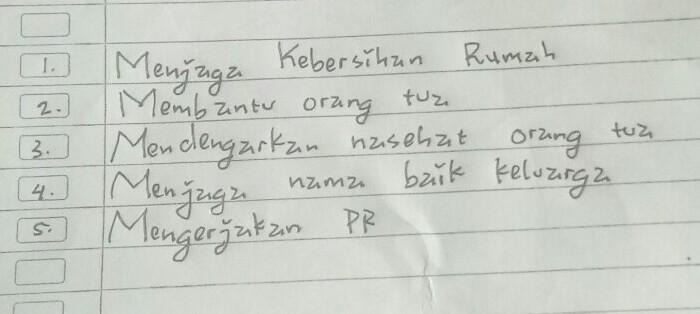 1. Menjaga Kebersihan Rumah
2. Membantu orang tua
3. Mendengarkan nasehat orang tua
4. Menjaga nama baik keluarga
5. Mengerjakan PR